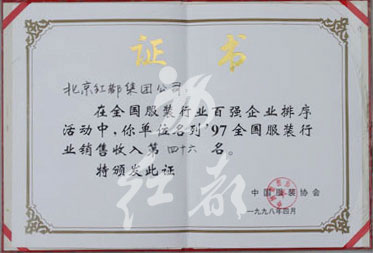 证书
北京红都集团公司
在全国服装行业百强企业排序
活动中,你单位名列'97全国服装行
业销售收入第四十六名。
特颁发此证
中国服装协会
一九九八年四月
红都